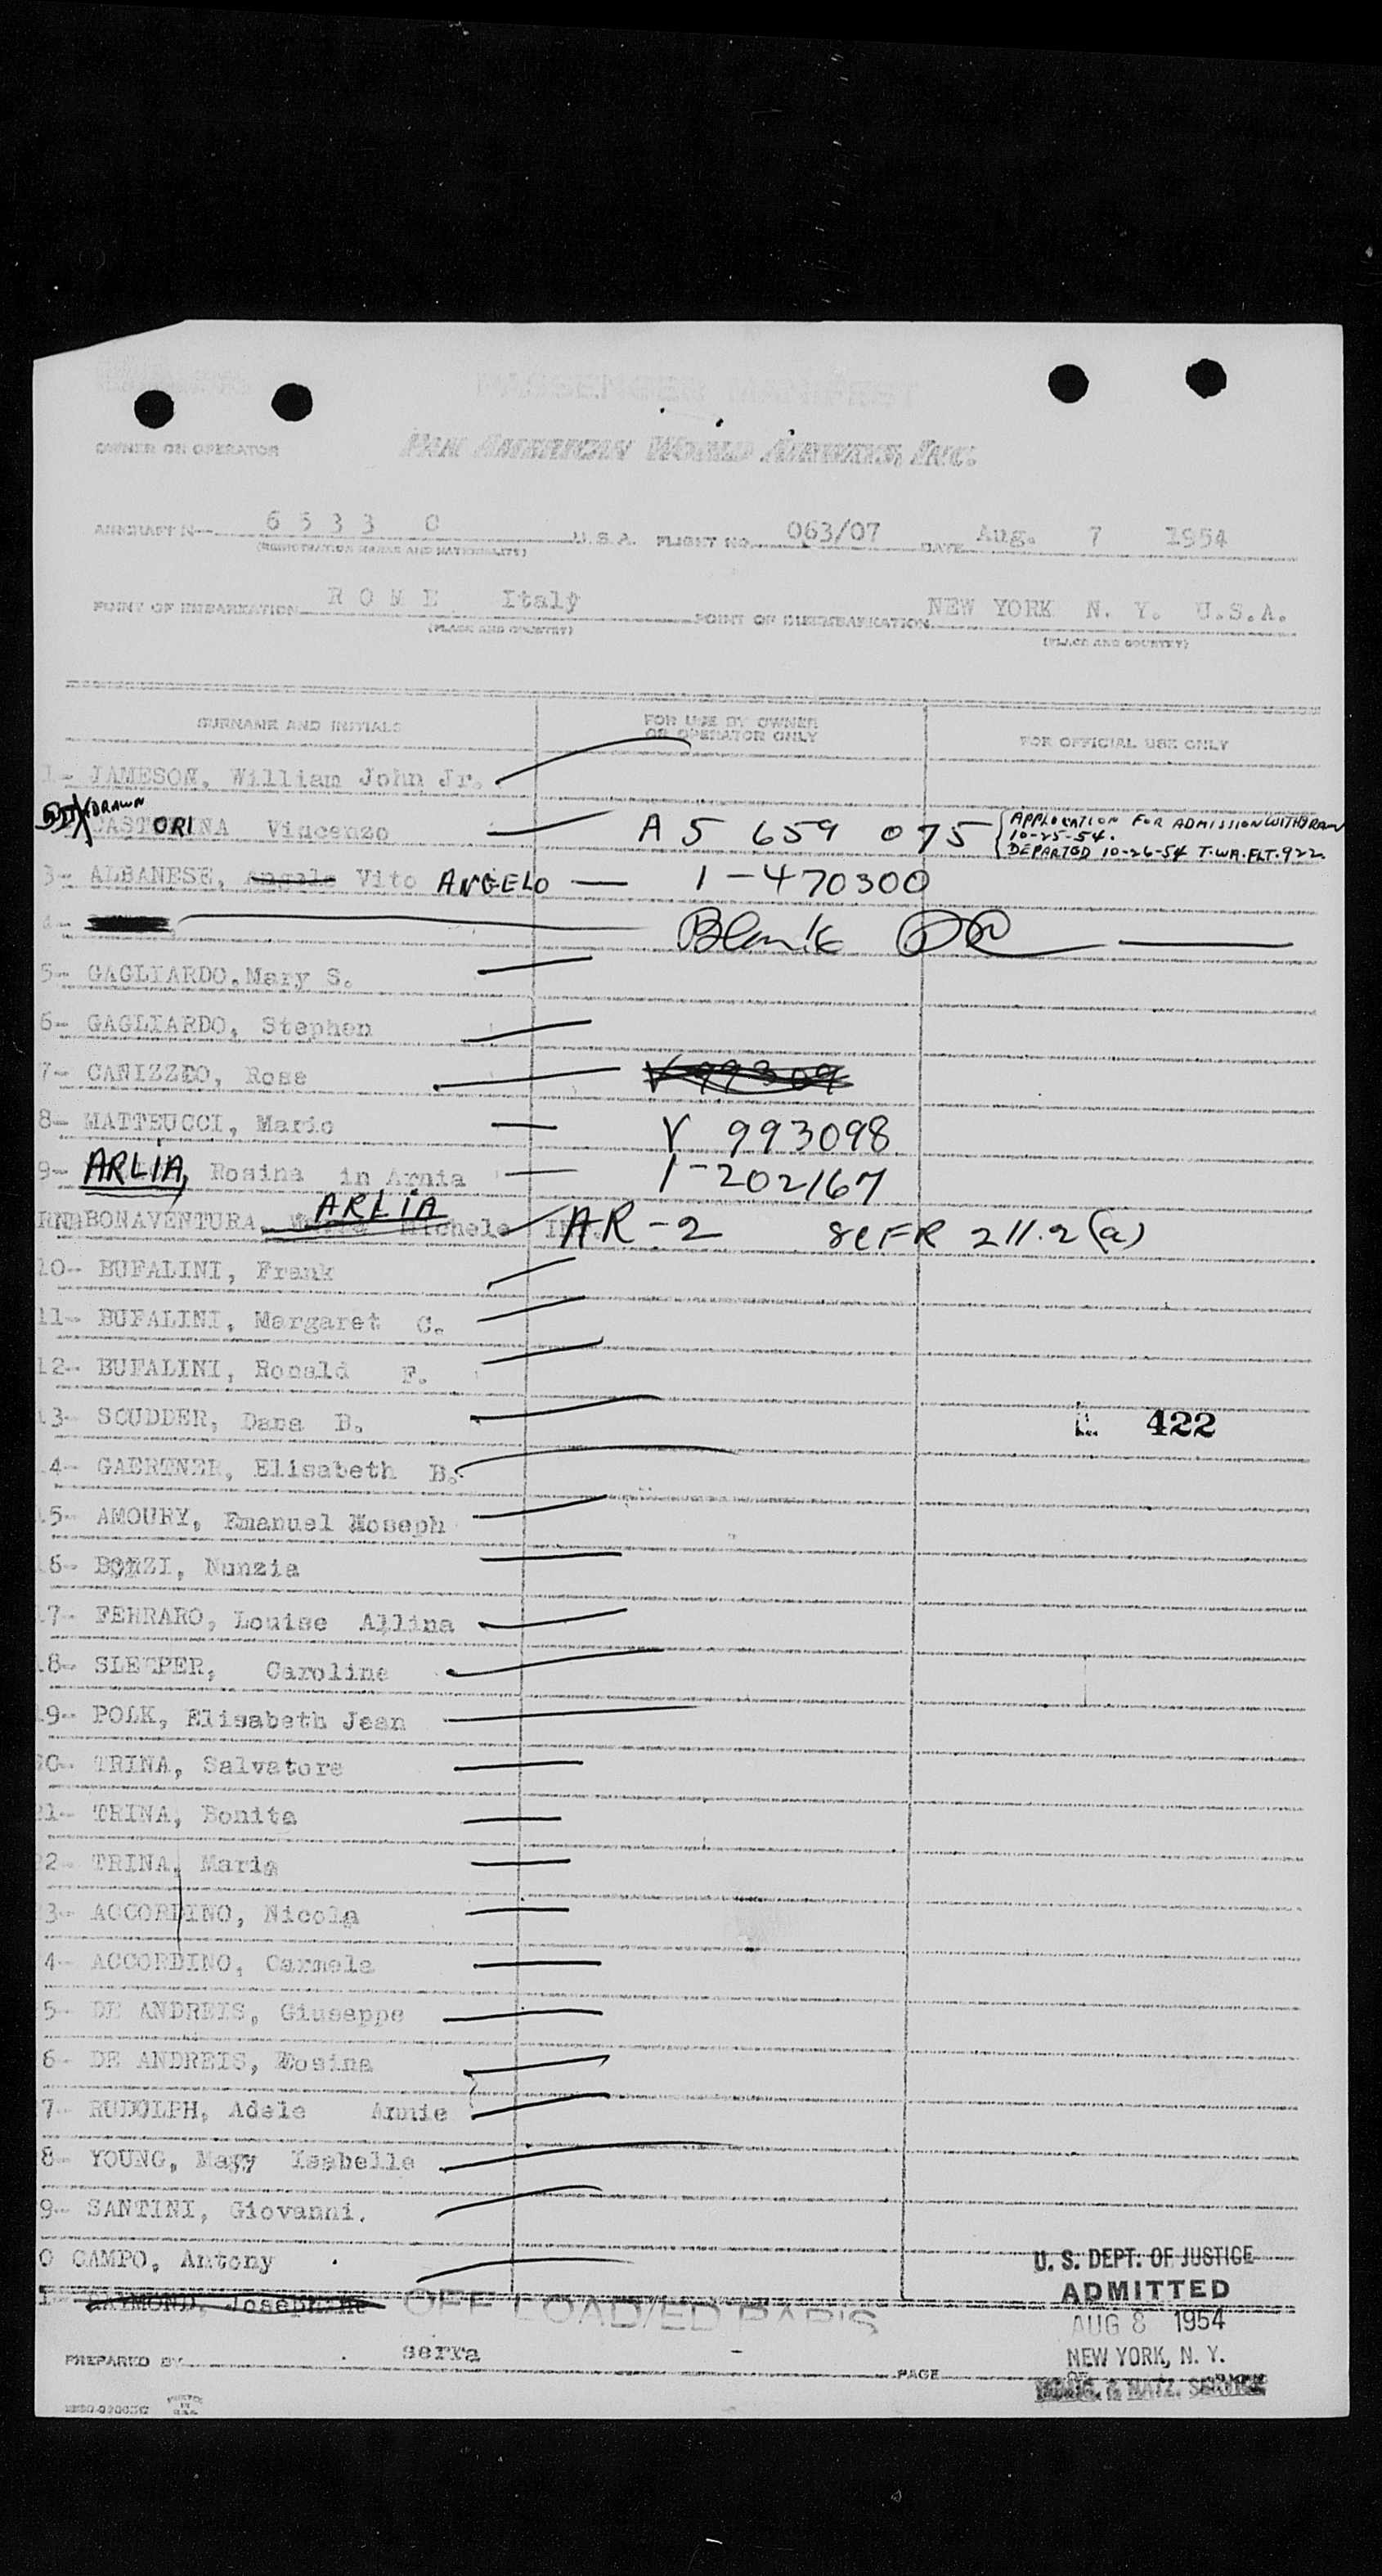 PASSENGER MANIFEST
OWNER OR OPERATOR PAN AMERICAN WORLD AIRWAYS, INC.
AIRCRAFT N- 6533 0 U.S.A. FLIGHT NO. 063/07 DATE Aug. 7 1954
(REGISTRATION MARKS AND NATIONALITY)
POINT OF EMBARKATION ROME Italy POINT OF DISEMBARKATION NEW YORK N. Y. U.S.A.
(PLACE AND COUNTRY) (PLACE AND COUNTRY)
SURNAME AND INITIALS FOR USE BY OWNER OR OPERATOR ONLY FOR OFFICIAL USE ONLY
1- JAMESON, William John Jr.
DRAWN
ORI Vincenzo A5 659 075 APPLICATION FOR ADMISSION WITHDRAWN
10-25-54.
DEPARTED 10-26-54 T.WA.FLT.922
3- ALBANESE, Angelo Vito ANGELO 1-470300
4- Blank
5- GAGLIARDO, Mary S.
6- GAGLIARDO, Stephen
7- CANIZZEO, Rose V 99309
8- MATTEUCCI, Mario V 993098
9- ARLIA, Rosina in Arnia 1-202167
ARLIA
BONAVENTURA, Michele INF. AR-2 8CFR 211.2(a)
10- BUFALINI, Frank
11- BUFALINI, Margaret C.
12- BUFALINI, Ronald F.
13- SCUDDER, Dana B. 422
4- GAERTNER, Elisabeth B.
5- AMOURY, Emanuel Moseph
6- BONZI, Nunzia
7- FERRARO, Louise Allina
8- SLEEPER, Caroline
9- POLK, Elisabeth Jean
20- TRINA, Salvatore
21- TRINA, Bonita
2- TRINA, Maria
3- ACCORDINO, Nicola
4- ACCORDINO, Carmela
5- DE ANDREIS, Giuseppe
6- DE ANDREIS, Rosina
7- RUDOLPH, Adele Annie
8- YOUNG, Mary Isabelle
9- SANTINI, Giovanni.
0 CAMPO, Antony
1- RAYMOND, Josephine OFF LOADED PARIS
U. S. DEPT. OF JUSTICE
ADMITTED
AUG 8 1954
NEW YORK, N. Y.
IMMIG. & NATZ. SERVICE
PREPARED BY serra PAGE OF
PRINTED IN U.S.A.